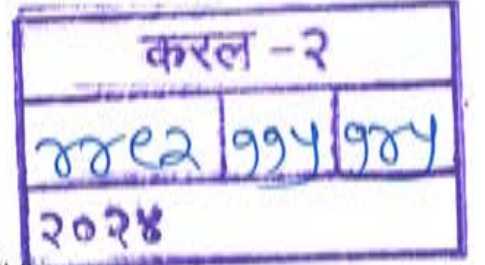 करल - २
४४९२ ११५ १४५
२०२४